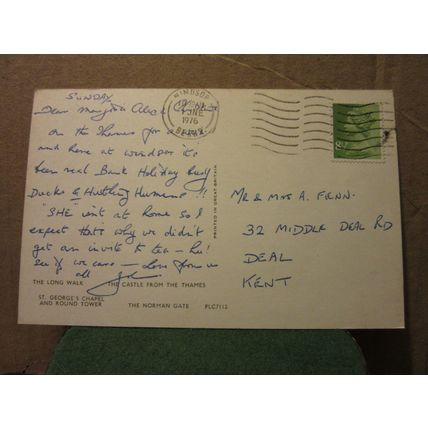 SUNDAY
Dear Marjorie Alec &
on the Thames for a
and here at Windsor it's
been real Bank Holiday busy
Ducks & Hustling Humans !!
"SHE" isn't at home so I
expect that's why we didn't
get an invite to tea –
see if we care – Love from us
all
WINDSOR
JUNE
1976
BERKS
PRINTED IN GREAT BRITAIN
MR & MRS A. FENN.
32 MIDDLE DEAL RD
DEAL
KENT
THE LONG WALK THE CASTLE FROM THE THAMES
ST. GEORGE'S CHAPEL
AND ROUND TOWER THE NORMAN GATE PLC7112